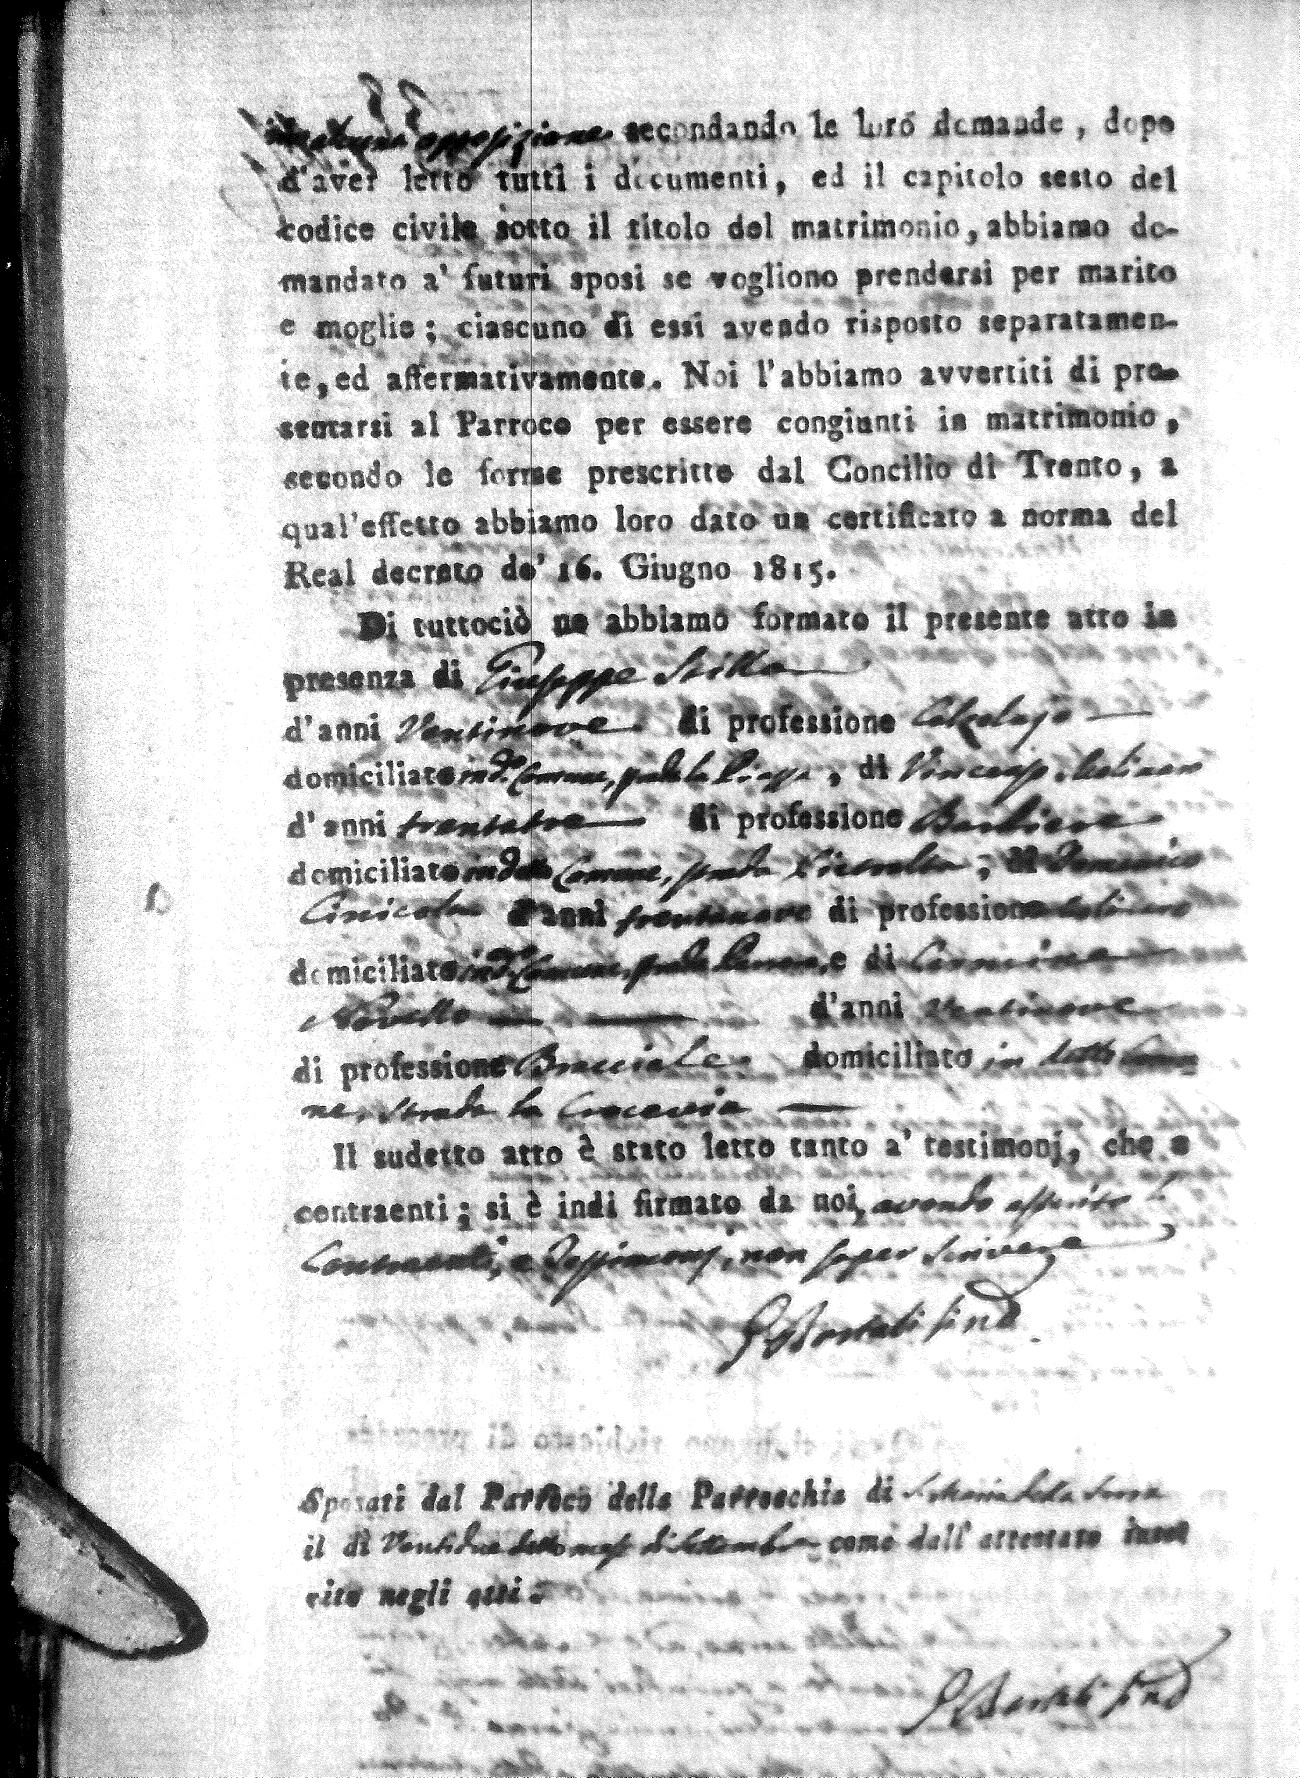 alcuna opposizione secondando le loro domande, dopo
d'aver letto tutti i documenti, ed il capitolo sesto del
codice civile sotto il titolo del matrimonio, abbiamo do-
mandato a' futuri sposi se vogliono prendersi per marito
e moglie; ciascuno di essi avendo risposto separatamen-
te, ed affermativamente. Noi l'abbiamo avvertiti di pre-
sentarsi al Parroco per essere congiunti in matrimonio,
secondo le forme prescritte dal Concilio di Trento, a
qual'effetto abbiamo loro dato un certificato a norma del
Real decreto de' 16. Giugno 1815.
Di tuttociò ne abbiamo formato il presente atto in
presenza di Giuseppe Stilla
d'anni Ventinove di professione Calzolajo
domiciliato in do. Comune, strada la Piazza, di
d'anni trentatre di professione Barbiere
domiciliato in do. Comune, strada ; di Domenico
Cinicola d'anni trentanove di professione
domiciliato in do. Comune, strada e di
d'anni Ventinove
di professione Bracciale domiciliato in detto Comu-
ne, strada la Crocevia
Il sudetto atto è stato letto tanto a' testimonj, che a
contraenti; si è indi firmato da noi, avendo asserito i
Contraenti, e Testimonj, non saper scrivere
Sind.
Sposati dal Parroco della Parrocchia di S. Maria della
il dì Ventidue detto mese di Settembre come dall'attestato inse-
rito negli atti.
Sind.